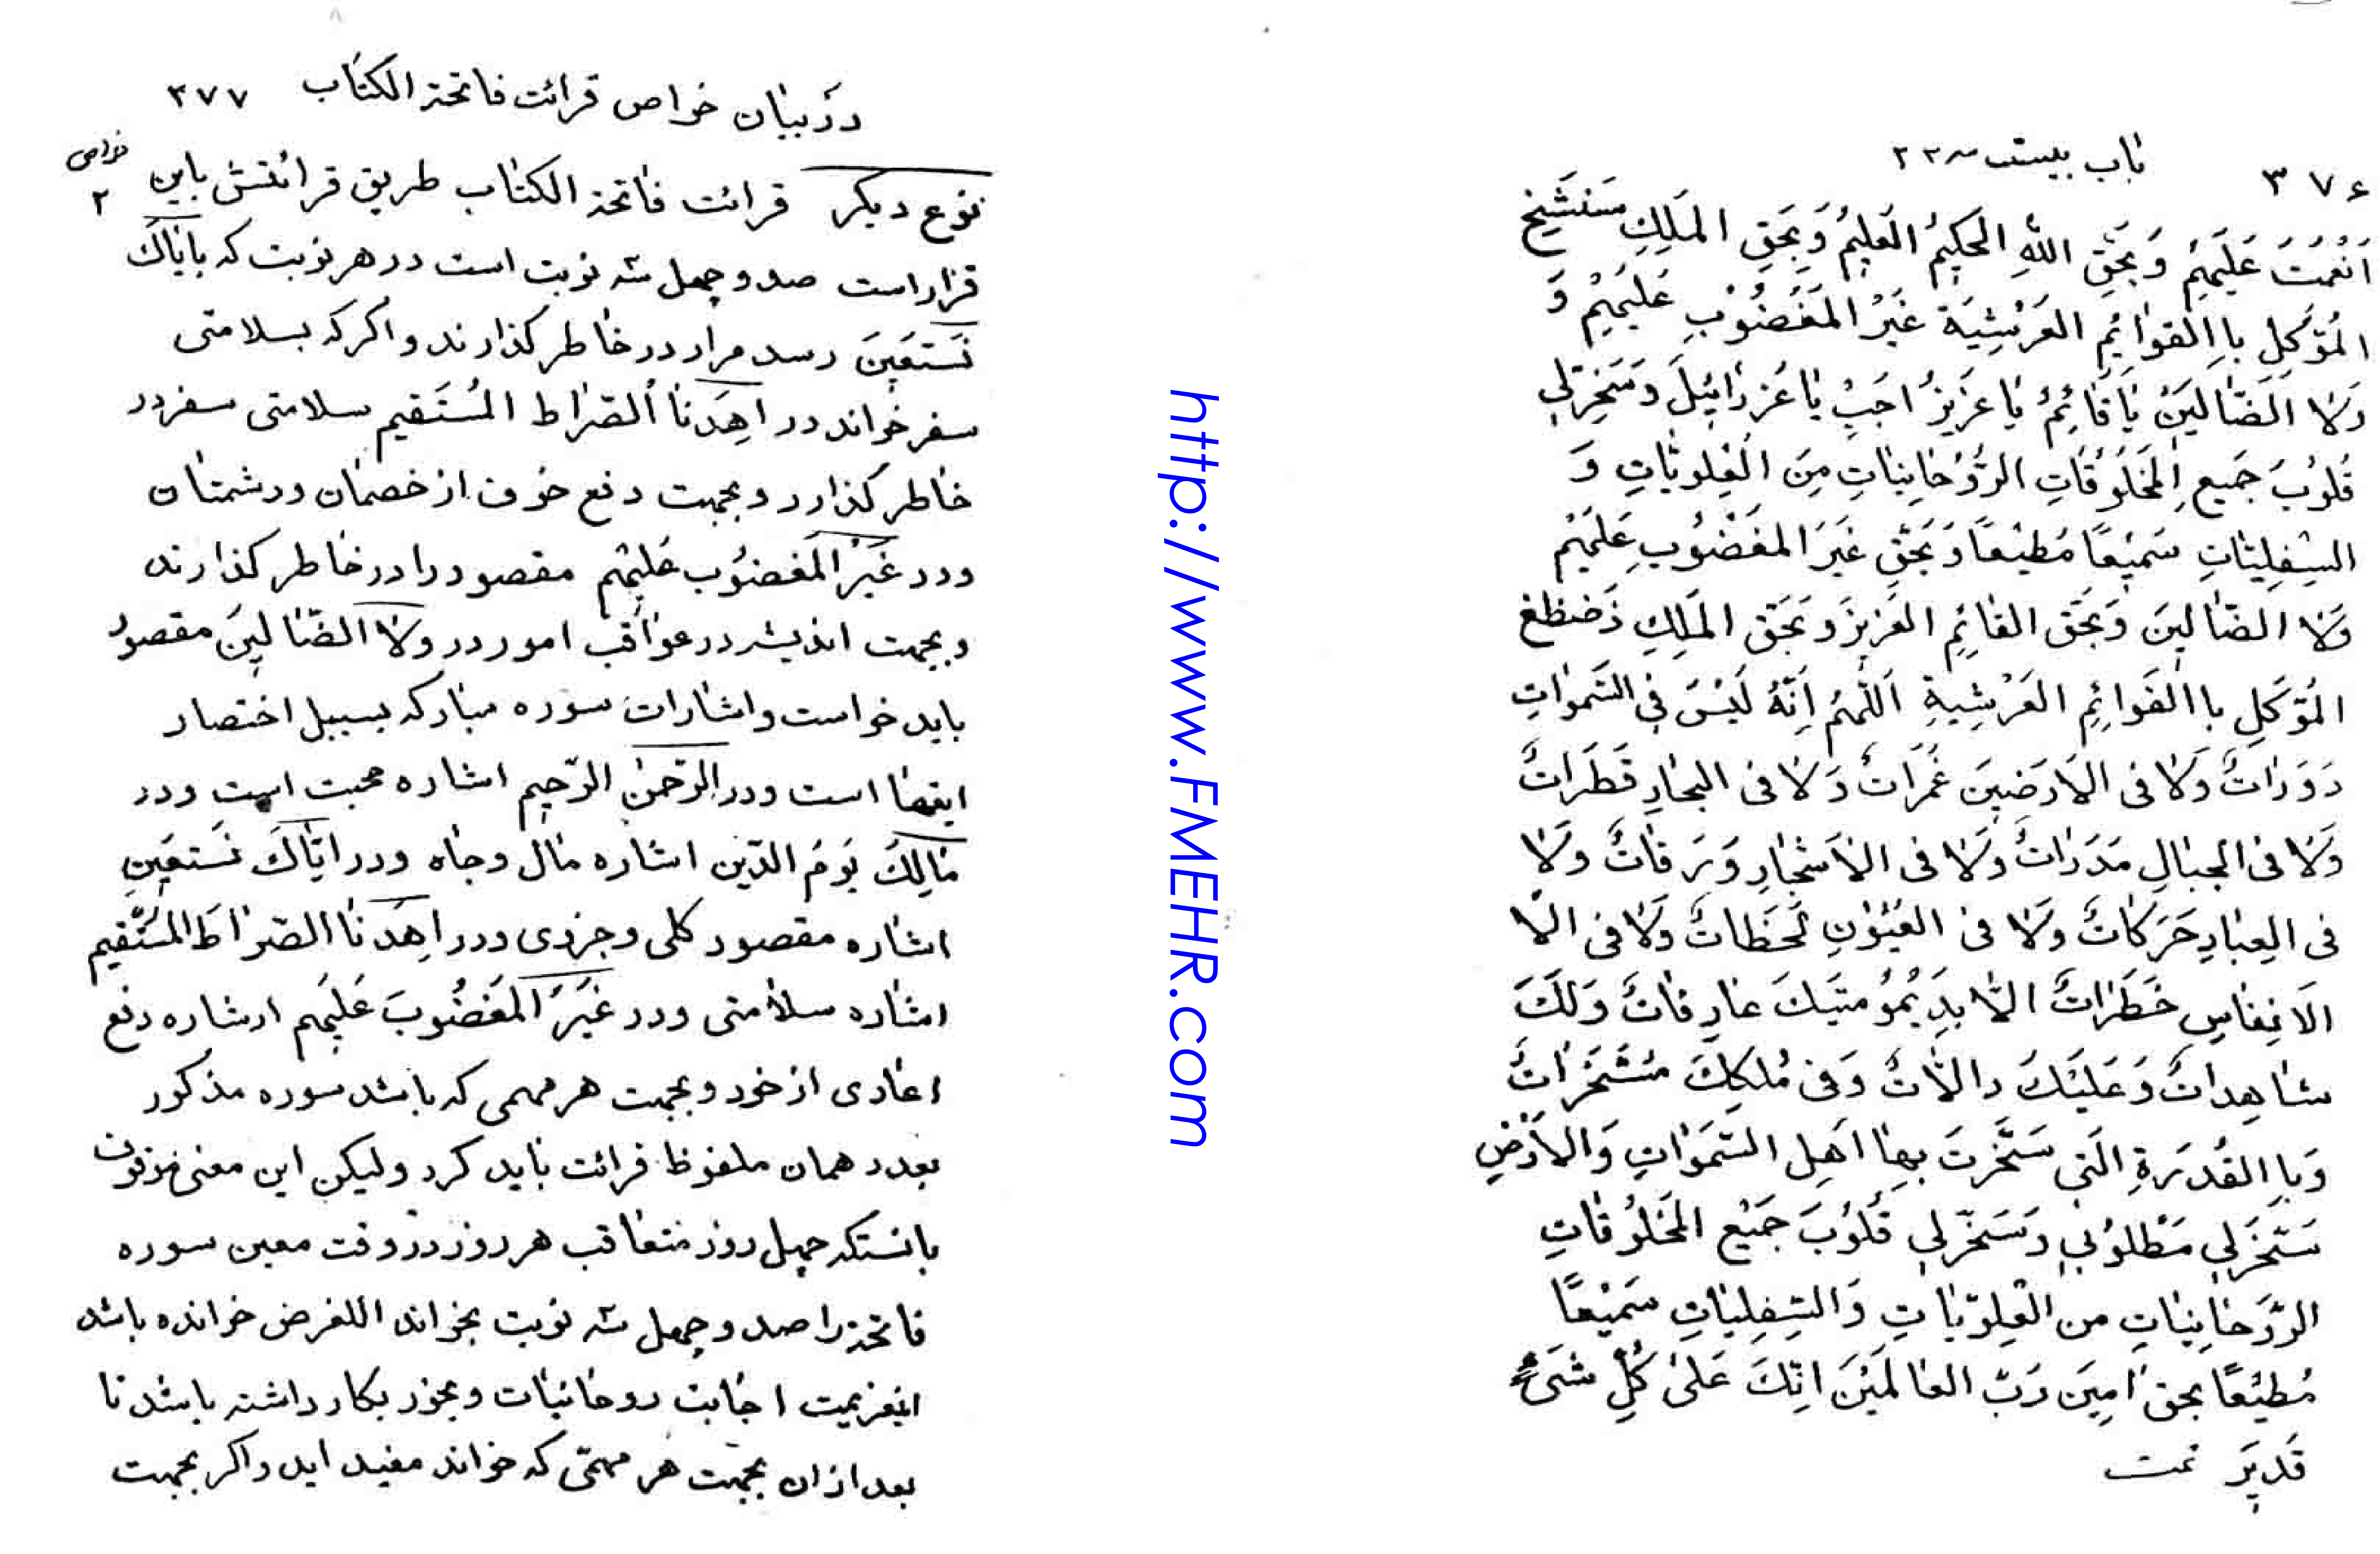 ۳۷۶ باب بیست ۲۳
اَنْعَمْتَ عَلَیْهِمْ وَبِحَقِّ اللهِ الحَکیمُ العَلیمُ وَبِحَقِّ المَلِکِ سَنَشَیخٍ
المُوَّکِلِ بِاالقَوٰایُمِ العَرْشِیَةِ غَیْرُ المَغْضُوْبِ عَلَیْهِمْ وَ
وَلاَ الضّٰالّینَ یٰا قٰائِمُ یٰا عَزیزُ اجَبْ یٰا عَزرٰائیلَ وَسَخِرّلی
قُلُوْبَ جَمیعِ المَخْلُوقٰاتِ الرُّوْحٰانِیٰاتِ مِنَ العُلْویٰاتِ وَ
السِفِلِیّٰاتِ سَمیْعًا مُطیْعًا وَبِحَقِّ غَیَرَ المغْضُوبِ عَلَیْهِمْ
وَلاَ الضّٰالینَ وَبِحَقِ القٰائِمِ العَزیزَ وَبِحَقِ المَلِکِ ذَضظِغِ
المُوّکَلِ باالقَوٰائِمِ العَرْشِیةِ اَللّهُمَ اِنّهُ لَیْسَ فِی السَّموٰاتِ
دَوَرٰاتٌ وَلاٰ فی الاَرَضینَ غَمَرٰاتٌ وَلاٰ فی البِحٰارِ قَطَرٰاتٌ
وَلاٰ فی الجِبٰالِ مَدَرٰاتٌ وَلاٰ فی الاَشجٰارِ وَرَقٰاتٌ وَلاٰ
فی العِبٰادِ حَرَکٰاتٌ وَلاٰ فی العُیُوْنِ لَحَظٰاتٌ وَلاٰ فی الّا
الاَنفٰاسِ خَطَرٰاتٌ الّاٰ بِدَیْمُوْمَتیَکَ عٰارِفٰاتٌ وَلَکَ
شٰاهِدٰاتٌ وَعَلَیْکَ دالّاتٌ وَفی مُلکِکَ مُسَخَّرٰاتٌ
وَبِاالقُدرَةِ الَتی سَخَّرتَ بِهٰا اَهلِ السّمَوٰاتِ وَالاَرْضِ
سَخَّرلی مَطْلوُبی وَسَخَّرلی قُلُوْبَ جَمیْعِ المَخْلُوقٰاتِ
الرّوَحٰانِیٰاتِ من العُلِوّیٰاتِ وَالسِفِلِیٰاتِ سَمیْعًا
مُطیْعًا بحق اٰمینَ رَبّ العٰالَمینَ اِنّکَ عَلیٰ کُلّ شَیْءٍ
قَدیَر تمت
دَر بیٰان خواص قرائت فاتحة الکتٰاب ۳۷۷
خواص
۲
نوع دیکر قرائت فاتحة الکتٰاب طریق قرائتش باین
قرار است صد و چهل سه نوبت است در هر نوبت که بایّاکَ
نَستَعینَ رسد مراد در خاطر کذارند و اکر که بسلامتی
سفر خواند در اِهدَنَا الصّرٰاط المُستَقیم سلامتی سفر در
خٰاطر کذارد و بجهت دفع خوف از خصمٰان و دشمنٰان
و در غَیْرِ المَغضوُب عَلَیْهِم مقصود را در خٰاطر کذارند
و بجهت اندیشه در عواقب امور در وَلاَ الضّٰالینَ مقصود
باید خواست و اشٰارات سوره مبٰارکه بسبیل اختصار
اینها است و در الرّحمٰن الرّحیم اشاره محبت است و در
مٰالِکَ یَومَ الدّین اشٰاره مٰال و جٰاه و در ایّاکَ نَستعَینِ
اشاره مقصود کلی و جزوی و در اِهدَنا الصّرٰاطَ المُستَقیم
اشٰاره سلامتی و در غَیْرَ المَغضُوبَ عَلَیهِم اشاره دفع
اعٰادی از خود و بجهت هر مهمی که باشد سوره مذکور
بعدد همان ملفوظ قرائت باید کرد ولیکن این معنی موقوف
بانستکه چهل روز متعٰاقب هر روز در وقت معین سوره
فاتحه را صد و چهل سه نوبت بخواند اللغرض خوانده باشد
اینعزیمت اجٰابت روحٰانیٰات و بخور بکار داشته باشد تا
بعد از ان بجهت هر مهمّی که خواند مفید اید و اکر بجهت
http://www.FMEHR.com